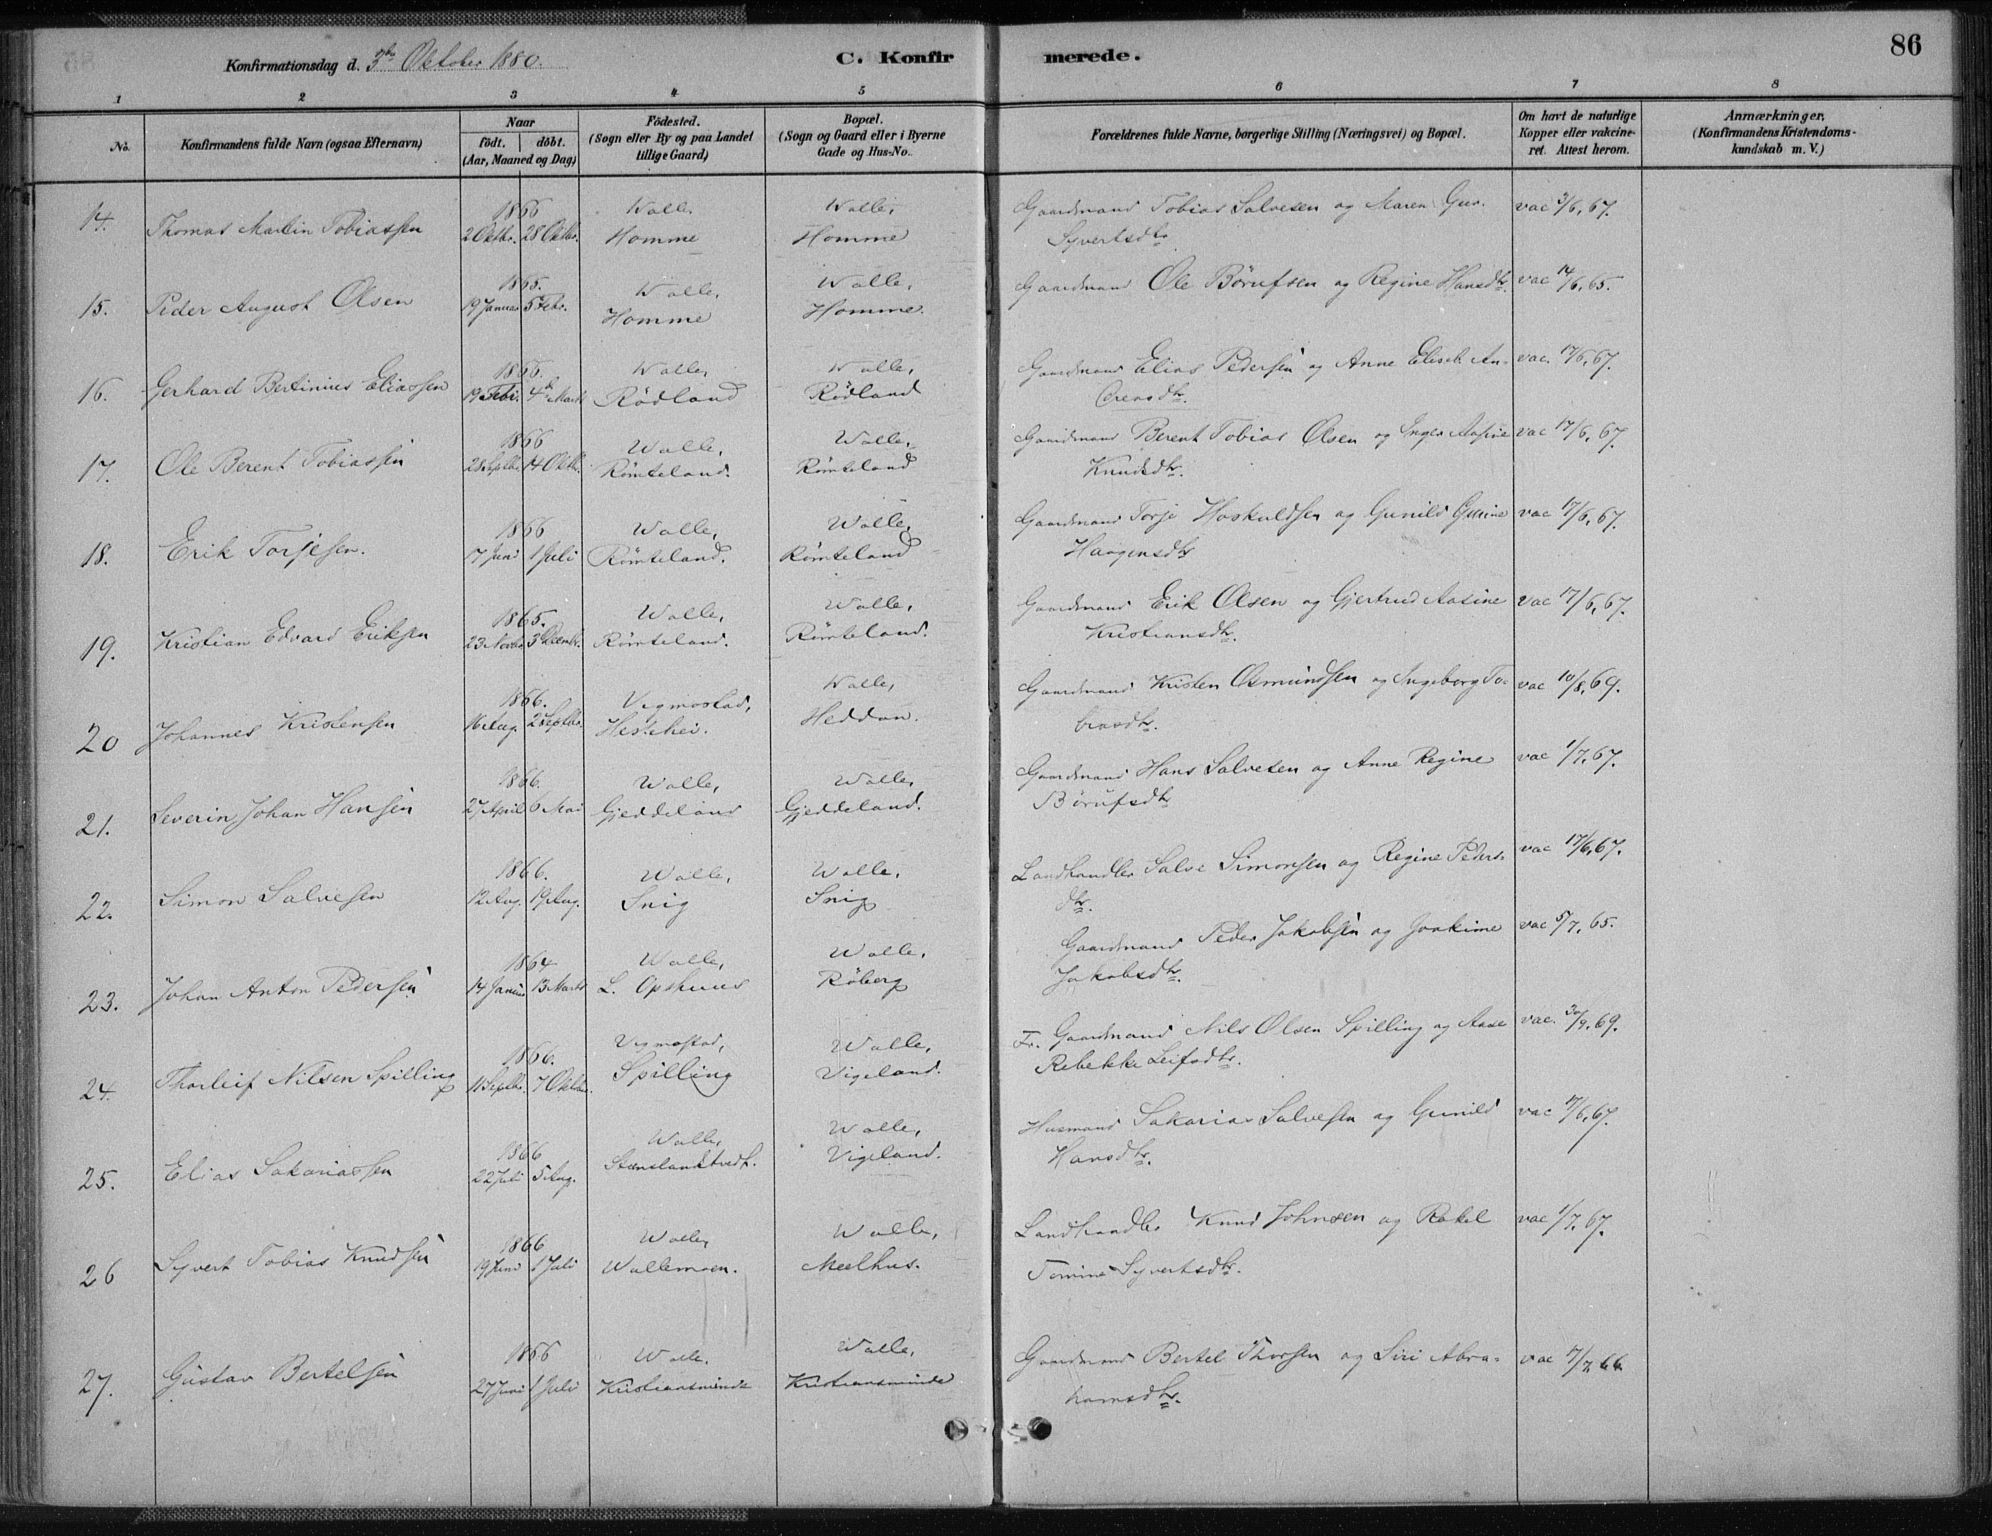 86
Konfirmationsdag d. 3die Oktober 1880. C. Konfirmerede.
1 2 3 4 5 6 7 8
No. Konfirmandens fulde Navn (ogsaa Efternavn) Naar födt. döbt. (Aar, Maaned og Dag) Födested. (Sogn eller By og paa Landet tillige Gaard) Bopæl. (Sogn og Gaard eller i Byerne Gade og Hus-No. Forældrenes fulde Navne, borgerlige Stilling (Næringsvei) og Bopæl. Om havt de naturlige Kopper eller vakcineret. Attest herom. Anmærkninger, (Konfirmandens Kristendomskundskab m. V.)
14. Thomas Martin Tobiassen 1866 2 Oktbr. 28 Oktbr. Walle, Homme Walle, Homme Gaardmand Tobias Salvesen og Maren Gur. Syvertsdtr. vac 3/6, 67.
15. Peder August Olsen 1865. 19 Januar 5 Febr. Walle, Homme Walle, Homme. Gaardmand Ole Börufsen og Regine Hansdtr. vac 14/6, 65.
16. Gerhard Bertinius Eliassen 1866. 19 Febr. 4de Marts Walle, Rödland Walle, Rödland Gaardmand Elias Pedersen og Anne Eliseb. Andreasdtr. vac. 17/6, 67.
17. Ole Berent Tobiassen 1866 28 Septbr. 14 Oktbr. Walle, Römteland. Walle, Römteland Gaardmand Berent Tobias Olsen og Inger Aasine Knudsdtr. vac 17/6, 67.
18. Erik Torjesen. 1866 17 Juni 1 Juli Walle, Römteland. Walle, Römteland Gaardmand Torje Hoskuldsen og Gunild Gurine Haagensdtr vac 17/6, 67.
19. Kristian Edvard Eriksen 1865. 23 Novbr. 3 Decembr. Walle, Römteland. Walle, Römteland. Gaardmand Erik Olsen og Gjertrud Aasine Kristiansdtr. vac 17/6, 67.
20 Johannes Kristensen 1866. 16 Aug. 2 Septbr. Vigmostad, Hestehei. Walle, Heddan. Gaardmand Kristen Osmundsen og Ingeborg Tobiasdtr. vac 10/8, 69.
21. Severin Johan Hansen 1866. 27 April 6 Mai Walle, Gjeddeland Walle, Gjeddeland. Gaardmand Hans Salvesen og Anne Regine Börufsdtr vac 1/7, 67.
22. Simon Salvesen 1866. 12 Aug. 19 Aug. Walle, Snig Walle, Snig Landhandler Salve Simonsen og Regine Pedersdtr. vac 17/6, 67.
23. Johan Anton Pedersen 1864 14 Januar 13 Marts Walle, L. Opshuus Walle, Röberg Gaardmand Peder Jakobsen og Joakime Jakobsdtr. vac 5/7, 65.
24. Thorleif Nilsen Spilling 1866. 11 Septbr. 7 Oktbr. Vigmostad, Spilling Walle, Vigeland. Fr. Gaardmand Nils Olsen Spilling og Aase Rebekke Leifsdtr. vac. 30/9, 69.
25. Elias Sakariassen 1866 22 Juli 5 Aug. Walle, Walle, Vigeland. Husmand Sakarias Salvesen og Gunild Hansdtr. vac 17/6, 67.
26 Syvert Tobias Knudsen 1866 19 Juni 1 Juli Walle, Wallemoen. Walle, Meelhus. Landhandler Knud Johnsen og Rakel Tomine Syvertsdtr. vac 1/7, 67.
27. Gustav Bertelsen 1866 27 Juni 1 Juli Walle, Kristiansminde Walle, Kristiansminde Gaardmand Bertel Thorsen og Siri Abrahamsdtr. vac